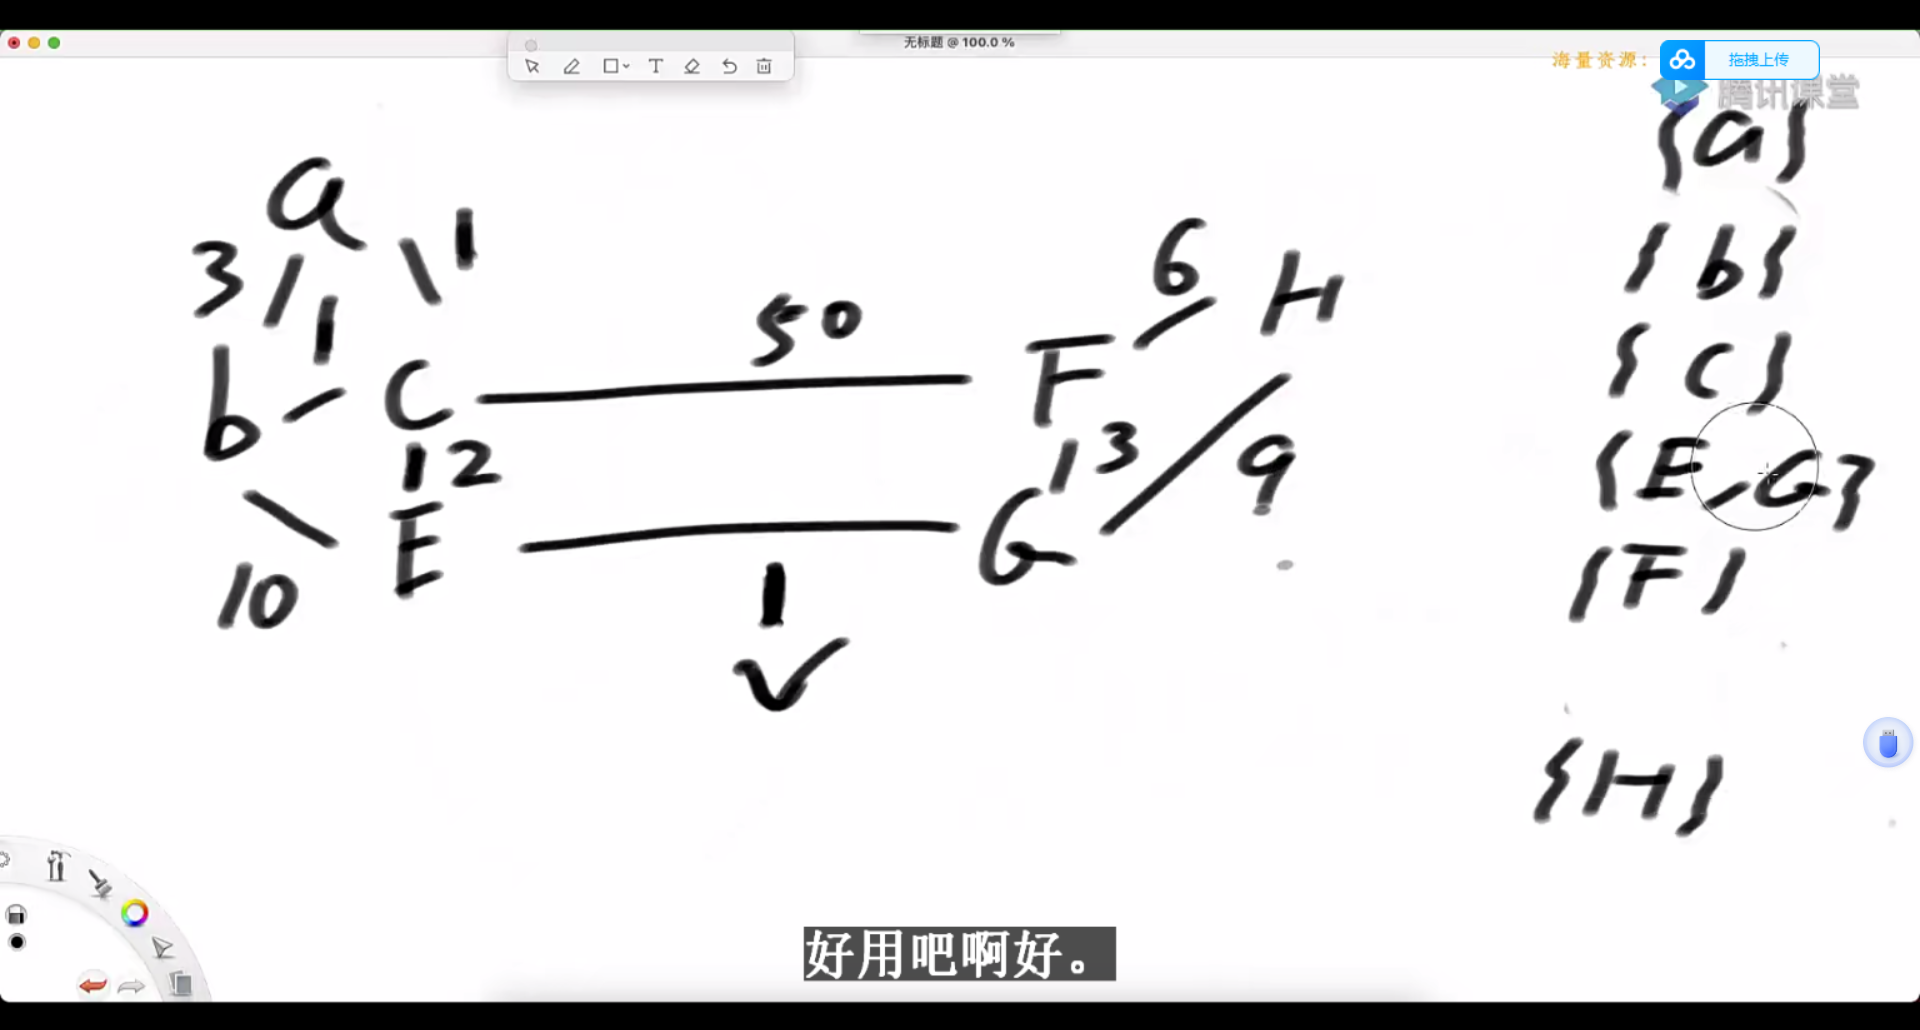 无标题 @ 100.0 %
海量资源:
拖拽上传
腾讯课堂
a
3
1
1
b
C
50
F
6
H
12
E
10
1
G
3
9
{a}
{b}
{C}
{E,G}
{F}
{H}
好用吧啊好。